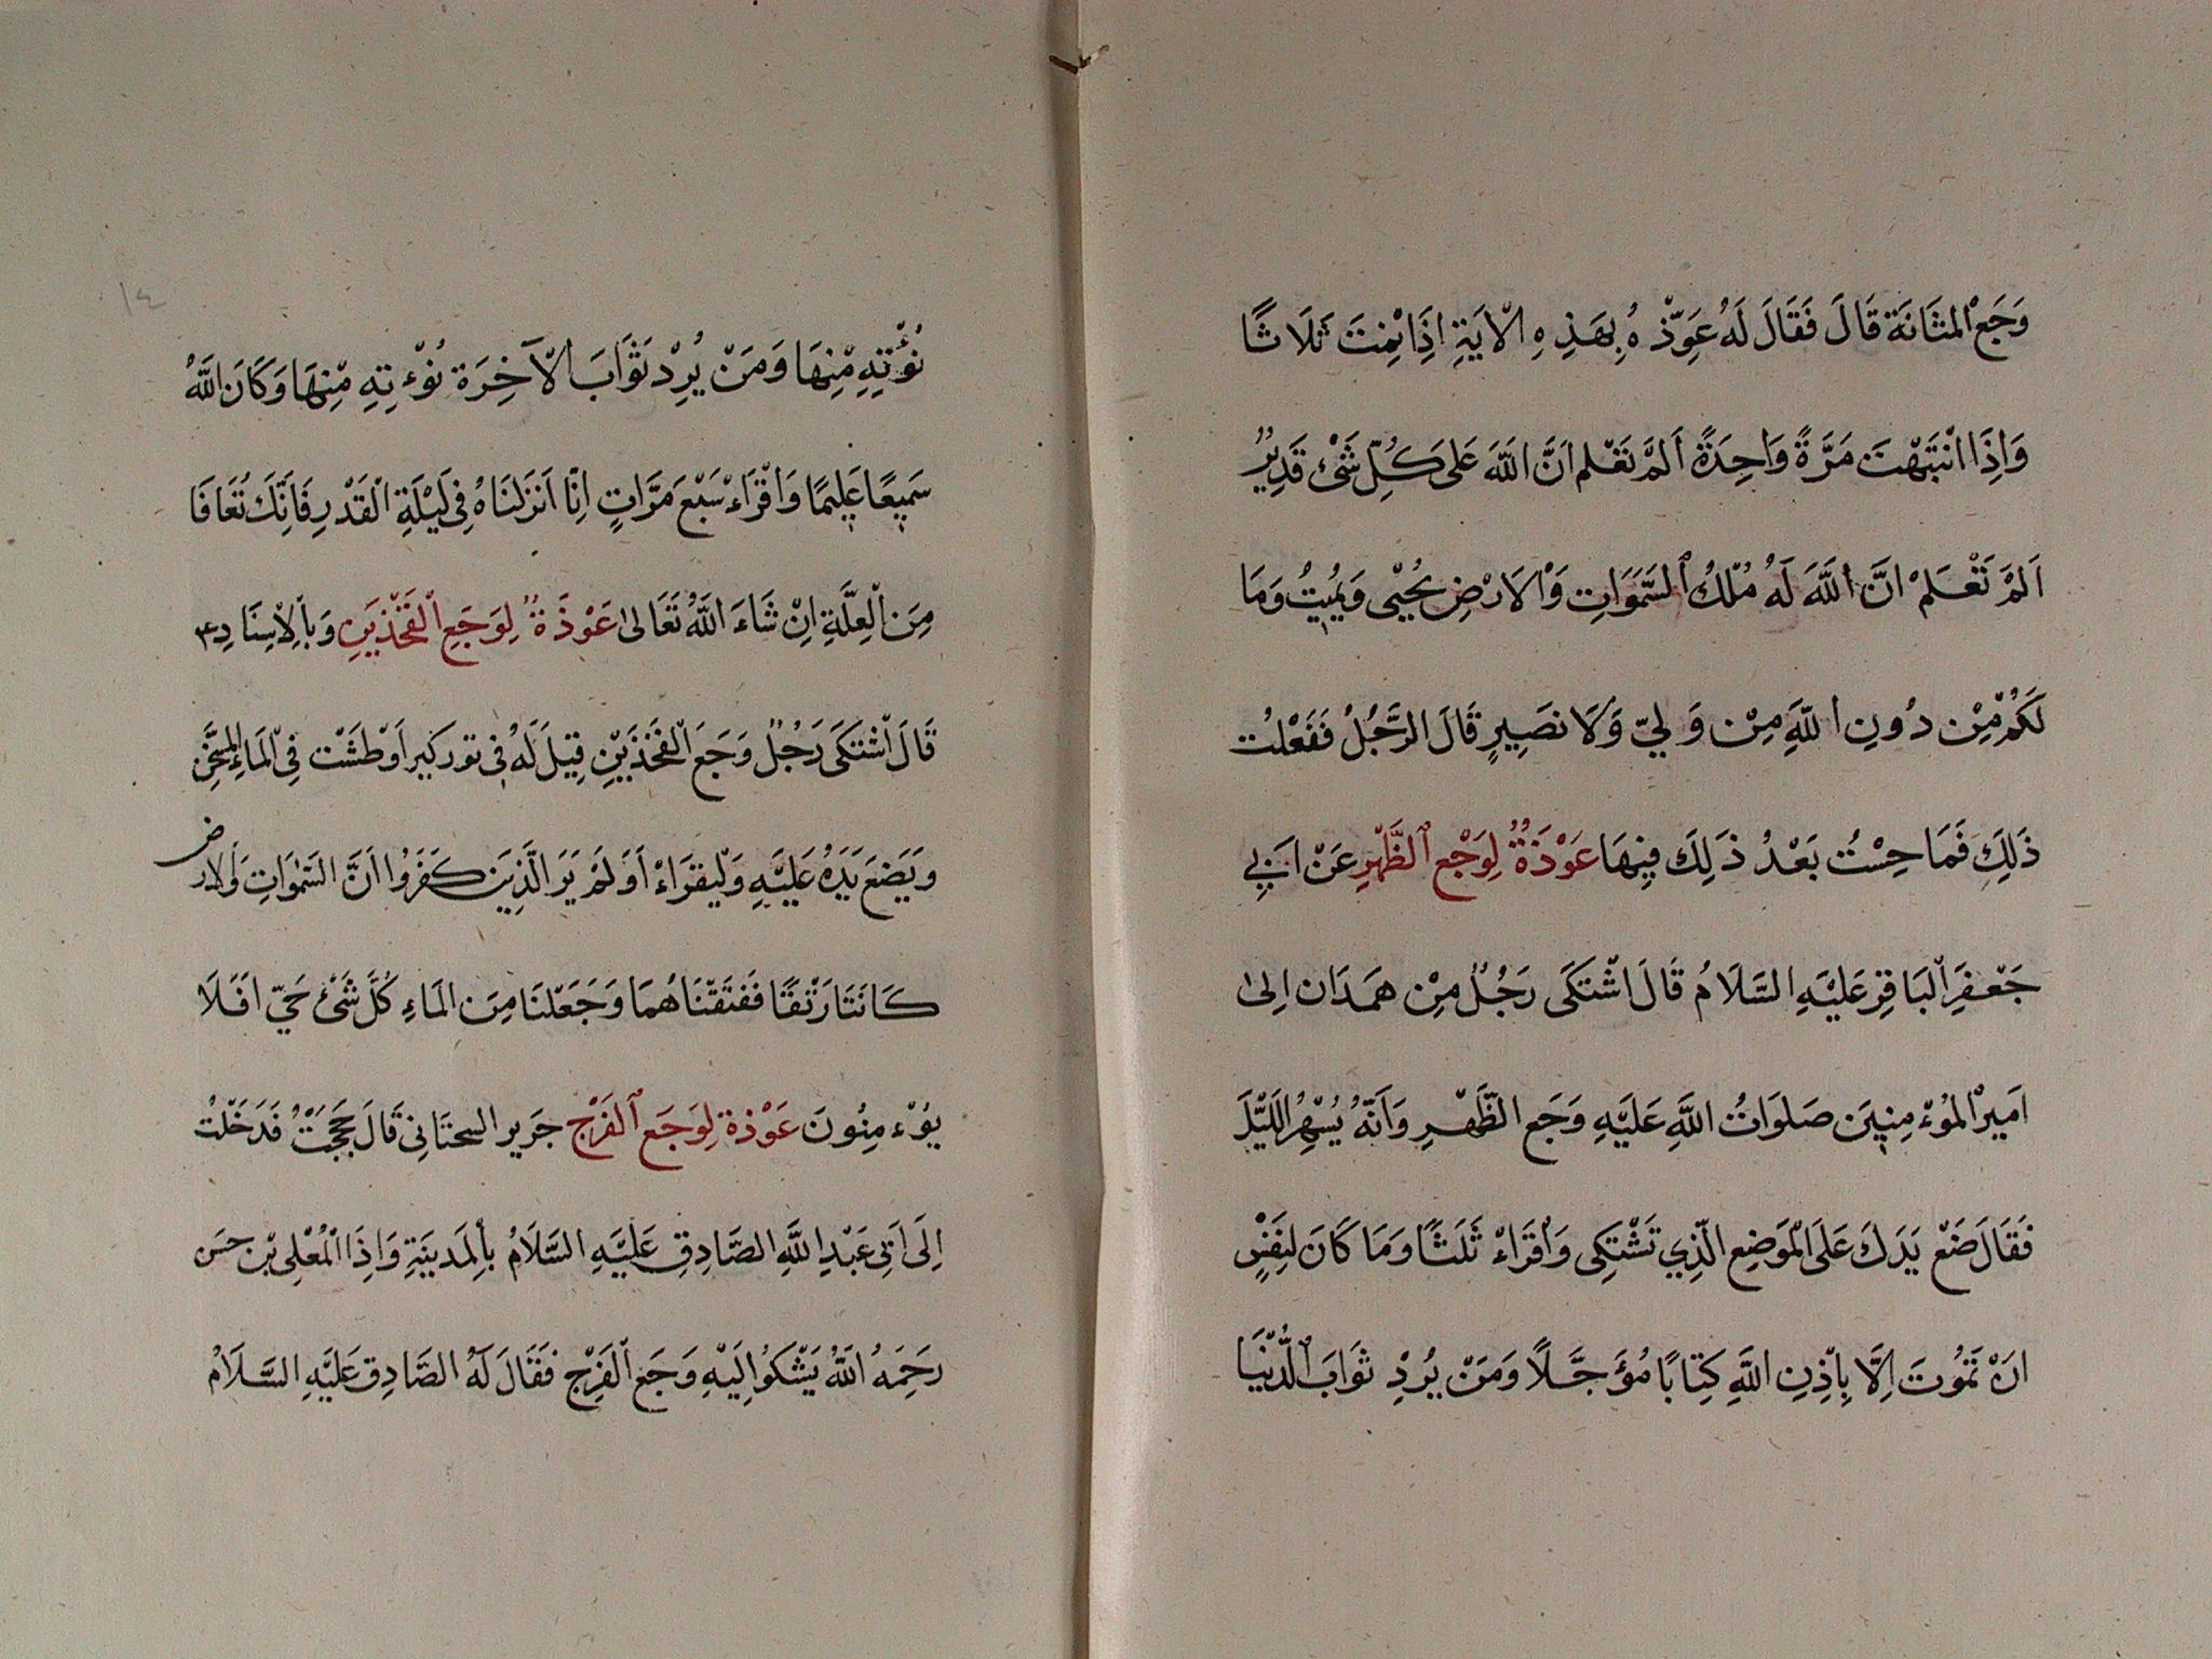 وَجَعَ الْمَثَانَةِ قَالَ فَقَالَ لَهُ عَوِّذْهُ بِهَذِهِ الْاَيَةِ اِذَا نِمْتَ ثَلَاثًا
وَاِذَا انْتَبَهْتَ مَرَّةً وَاحِدَةً اَلَمْ تَعْلَم اَنَّ اللّٰهَ عَلَى كُلِّ شَىْءٍ قَدِيْرٌ
اَلَمْ تَعْلَمْ انَّ اللّٰهَ لَهُ مُلْكُ السَّمَوَاتِ وَالْاَرْضِ يُحْيٖى وَيُمِيتُ وَمَا
لَكُمْ مِنْ دُونِ اللّٰهِ مِنْ وَلِيٍّ وَلَا نَصِيرٍ قَالَ الرَّجُلُ فَفَعَلْتُ
ذَلِكَ فَمَا حِسْتُ بَعْدُ ذَلِكَ فِيهَا عَوْذَةٌ لِوَجْعِ الظَّهْرِ عَنْ اَبِي
جَعْفَرِ الْبَاقِرِ عَلَيْهِ السَّلَامُ قَالَ اشْتَكَى رَجُلٌ مِنْ هَمَدَان اِلىٰ
امَيرِ الْمُوءْمِنِيَن صَلَوَاتُ اللّٰهِ عَلَيْهِ وَجَعِ الظَّهْرِ وَاَنَّهُ يُسْهِرُ اللَّيْلَ
فَقَالَ ضَعْ يَدَكَ عَلَى الْمَوضِعِ الَّذِي تَشْتَكِى وَاقْرَاءْ ثَلَثًا وَمَا كَانَ لِنَفْسٍ
انَ تَمُوتَ اِلَّا بِاِذْنِ اللّٰهِ كِتَابًا مُؤَجَّلًا وَمَنْ يُرِدْ ثَوَابَ الدُّنْيَا
١٤
نُؤْتِهِ مِنْهَا وَمَنْ يُرِدْ ثَوَابَ الْآخِرَة نُوْءتِهِ مِنْهَا وَكَانَ اللّٰهُ
سَمِيعًا عَلِيمًا وَاقْرَاءْ سَبْعَ مَرَّاتٍ اِنَّا اَنْزَلْنَاهُ فِى لَيْلَةِ الْقَدْرِ فَاَنِّكَ تُعَافَا
مِنَ الْعِلَّةِ اِنْ شَاءَ اللّٰهُ تَعَالىٰ عَوْذَةٌ لِوَجَعِ الْفَخْذَيْنِ وَبِالْاِسِنَادِ
قَالَ اشْتَكَى رَجُلٌ وَجَعَ الْفَخَذَيْنِ قِيلَ لَهُ فِى تور كبير اَوْ طَشْتٍ فِى الْمَاءِ الْمُسَخَّنِ
وَيَضَعَ يَدَهُ عَلَيْهِ وَلْيقرَاءْ اَوَ لَمْ يَرَ الَّذِينَ كَفَرُوا اَنَّ السَّمٰوَاتِ وَالْارض
كَانَتَا رَتْقًا فَفَتَقْنَاهُمَا وَجَعَلْنَا مِنَ المَاءِ كُلَّ شَىْءٍ حَيٍّ افَلَا
يوُءمِنُونَ عَوْذة لِوَجَعِ الْفَرْجِ جَرير السحتَانِى قَالَ حَجَجْتُ فَدَخَلْتُ
اِلَى اَبِى عَبْدِ اللّٰهِ الصَّادِقِ عَلَيْهِ السَّلَامُ بِالْمَدينَةِ وَاِذَا الْمُعْلِى بْن حسَن
رَحِمَهُ اللّٰهُ يَشْكُوا اِلَيْهِ وَجَعَ الْفَرْجِ فَقَالَ لَهُ الصَّادِق عَلَيْهِ السَّلَامُ